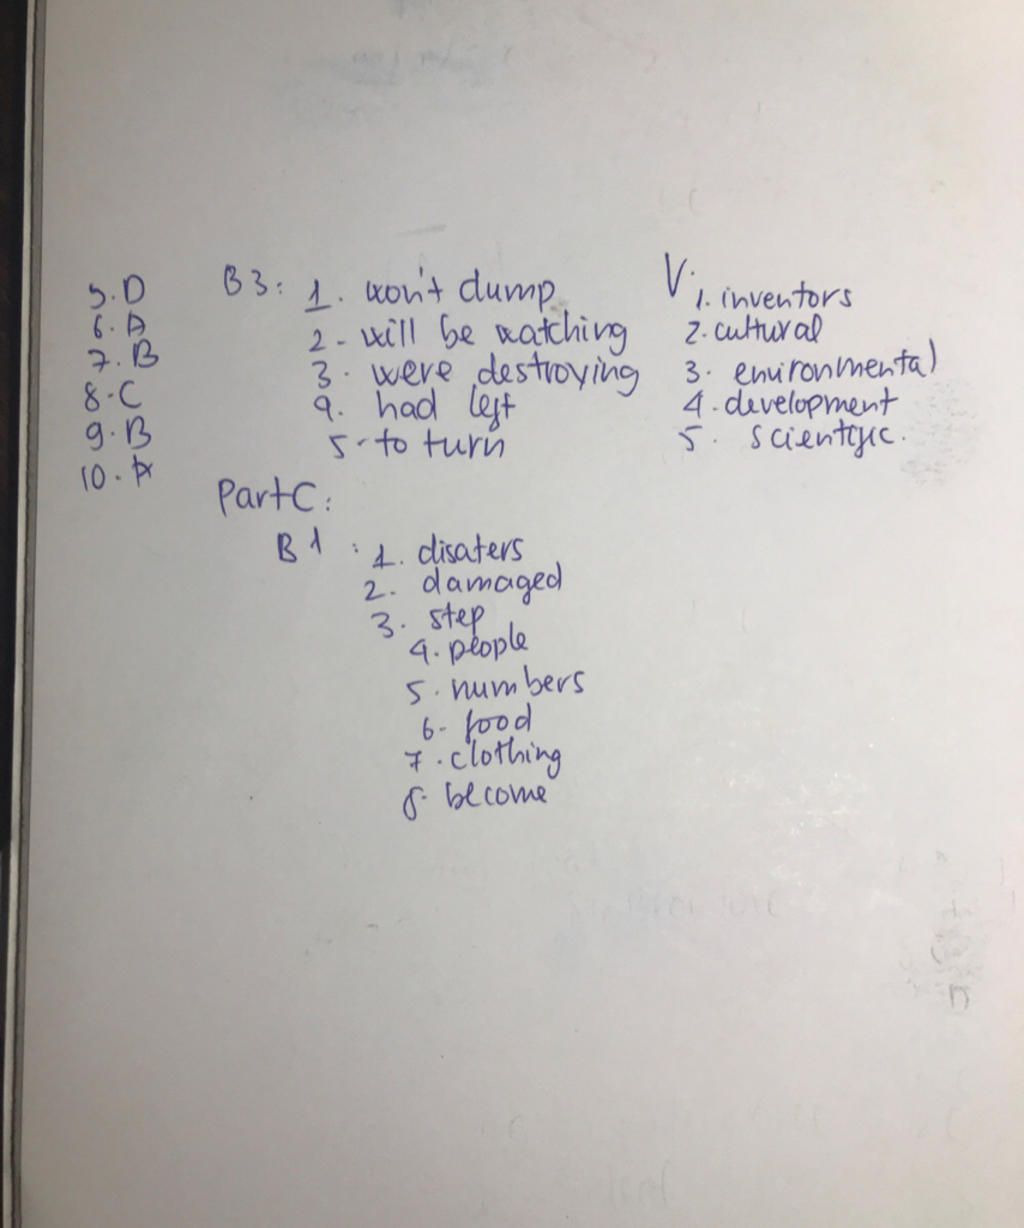 5.D
6.A
7.B
8.C
9.B
10.A
B3:
1. won't dump
2- will be watching
3. were destroying
4. had left
5-to turn
V.
1. inventors
2.cultural
3. environmental
4.development
5. scientific.
Part C:
B1:
1. disaters
2. damaged
3. step
4. people
5. numbers
6- food
7.clothing
8. become